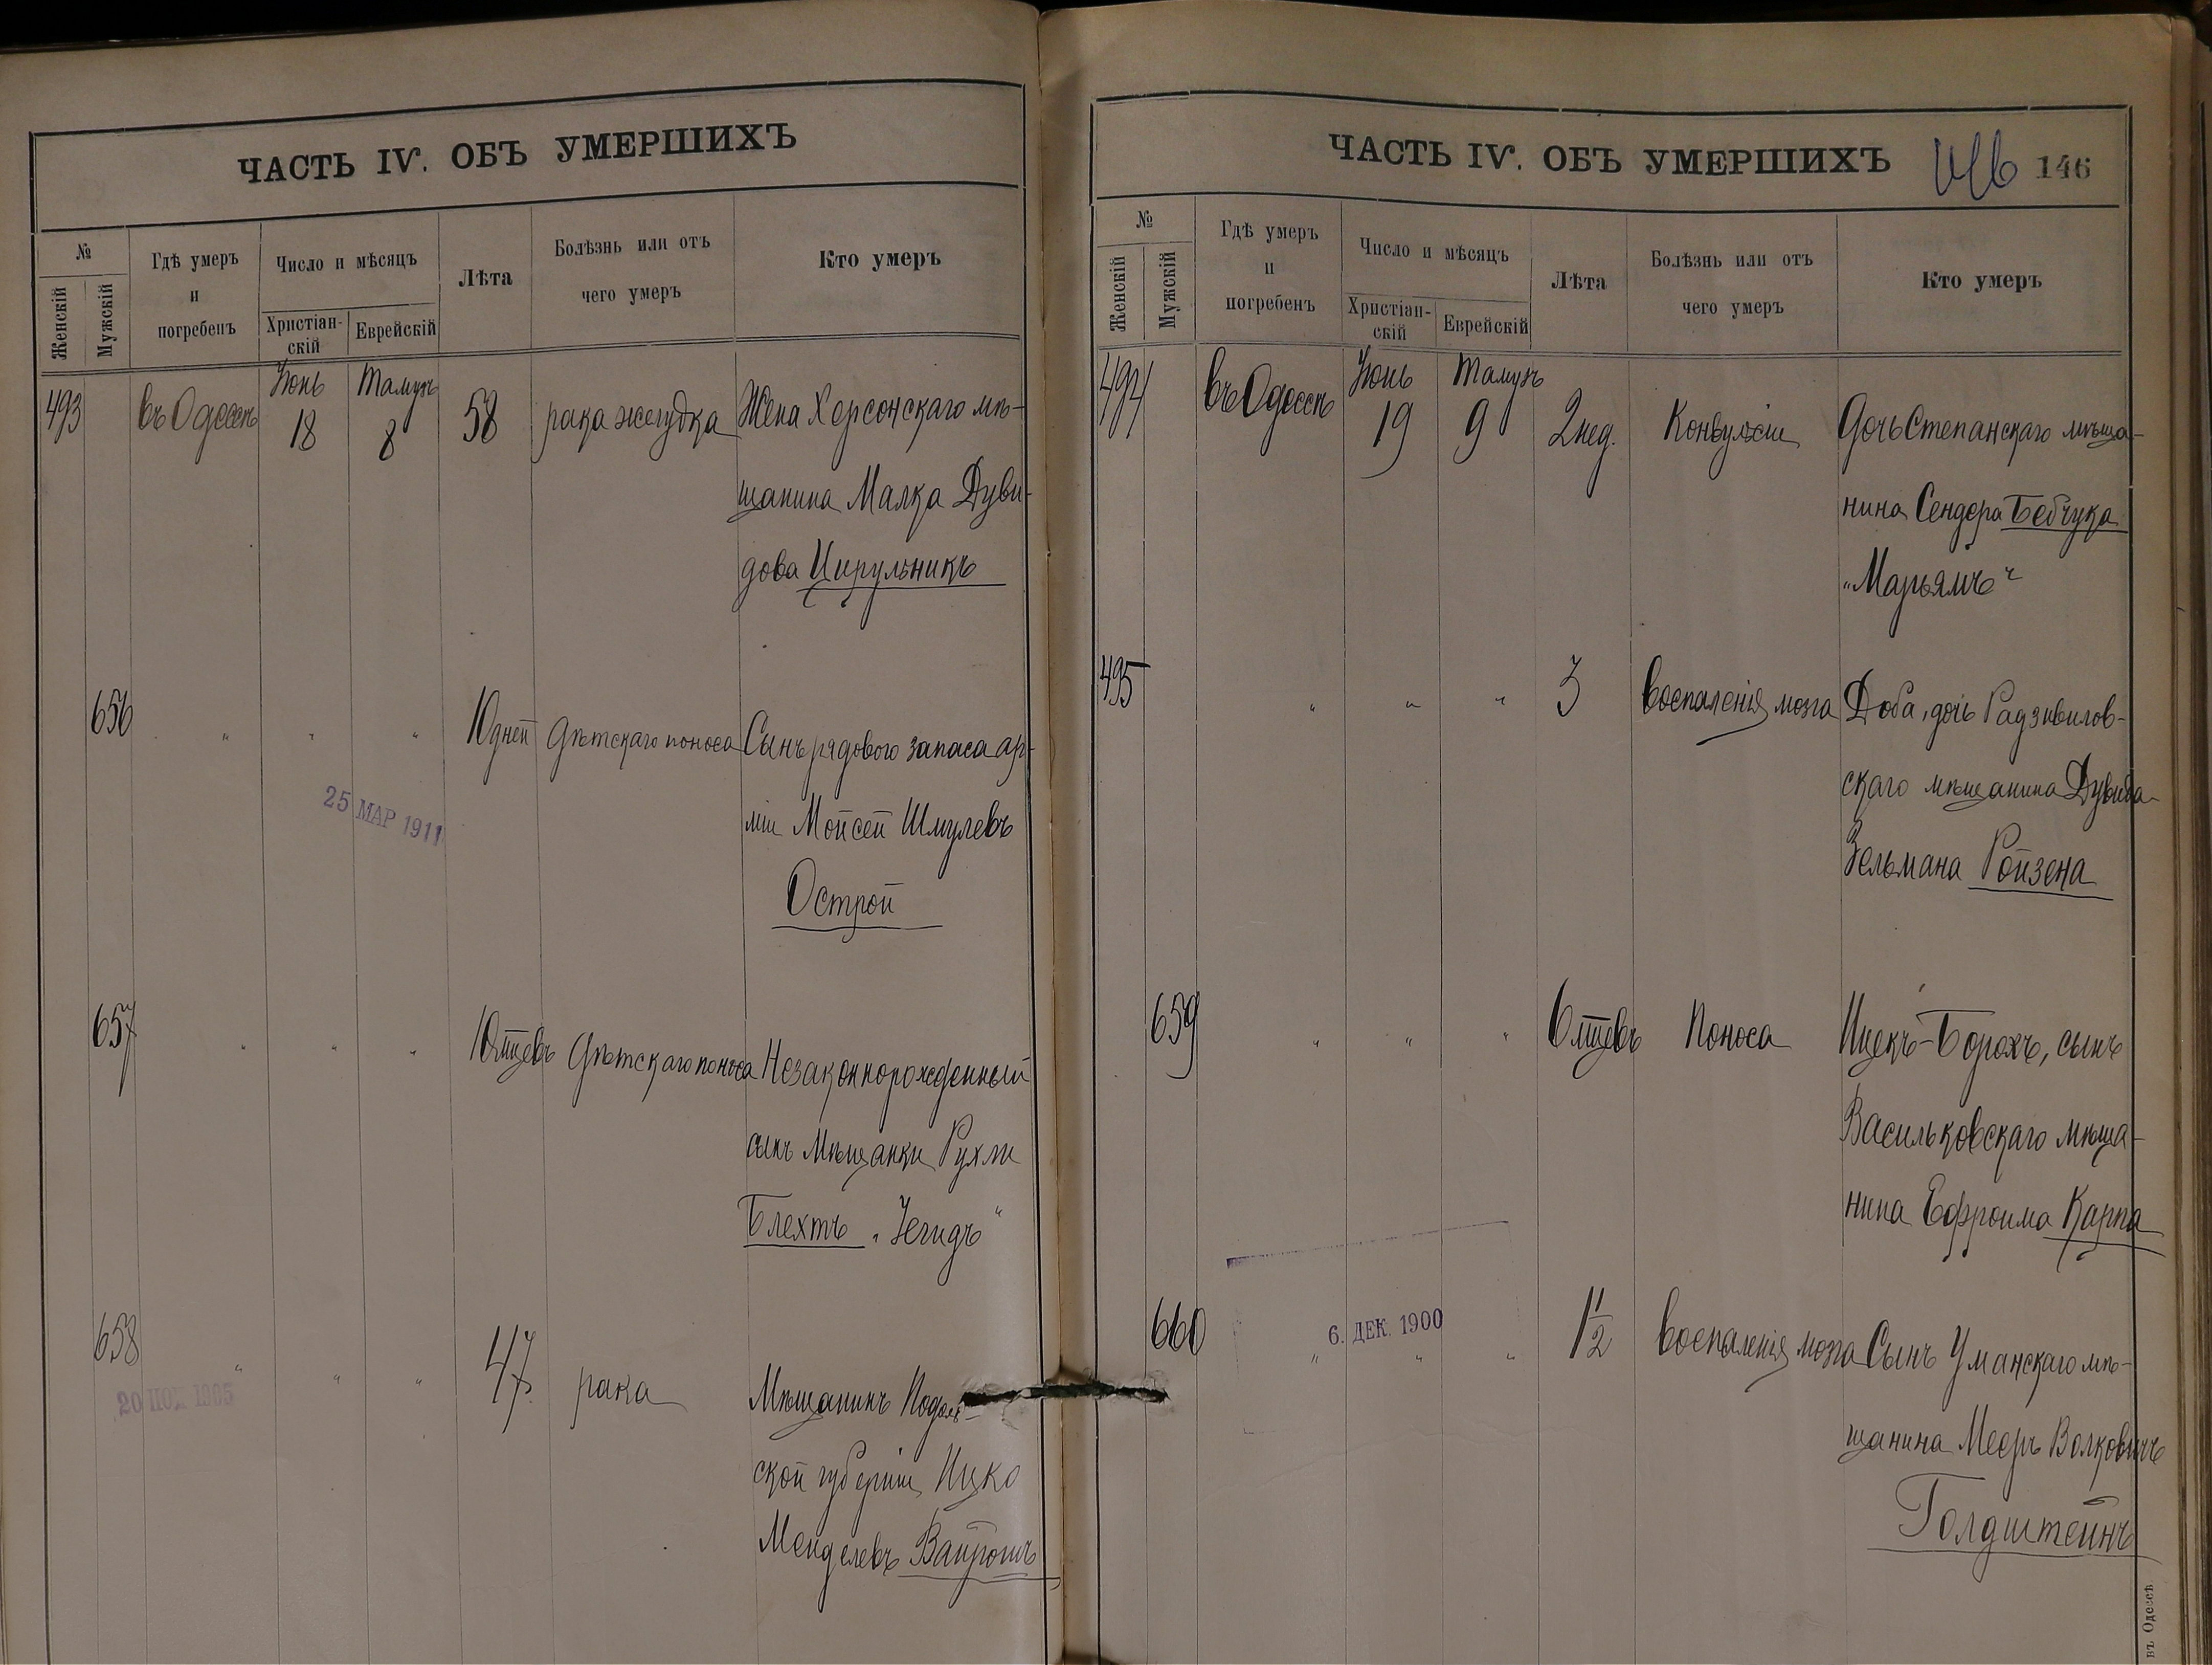 ЧАСТЬ IV. ОБЪ УМЕРШИХЪ
№
Женскій
Мужскій
Гдѣ умеръ
и
погребенъ
Число и мѣсяцъ
Христіан-
скій
Еврейскій
Лѣта
Болѣзнь или отъ
чего умеръ
Кто умеръ
493 въ Одессѣ Іюнь 18 Тамузъ 8 58 рака желудка Жена Херсонскаго мѣ-
щанина Малка Дуви-
дова Цирульникъ
656 " " " 10 дней Дѣтскаго поноса Сынъ рядового запаса ар-
міи Мойсей Шмулевъ
Острой
25 МАР 1911
657 " " " 10 мцевъ Дѣтскаго поноса Незаконнорожденный
сынъ Мѣщанки Рухли
Блехтъ „Іегидъ“
658 " " " 47 рака Мѣщанинъ Подоль-
ской губерніи Ицко
Менделевъ
20 НОЯ 1905
ЧАСТЬ IV. ОБЪ УМЕРШИХЪ 146 146
№
Женскій
Мужскій
Гдѣ умеръ
и
погребенъ
Число и мѣсяцъ
Христіан-
скій
Еврейскій
Лѣта
Болѣзнь или отъ
чего умеръ
Кто умеръ
494 въ Одессѣ Іюнь 19 Тамузъ 9 2 нед. Конвульсіи Дочь Степанскаго мѣща-
нина Сендера Бебчука
„Марьямъ“
495 " " " 3 воспаленія мозга Доба, дочь Радзивилов-
скаго мѣщанина Дувида-
Зельмана Ройзена
659 " " " 6 мцевъ Поноса Ицекъ-Борохъ, сынъ
Васильковскаго мѣща-
нина Ефроима Карпа
660 " " " 1 1/2 воспаленія мозга Сынъ Уманскаго мѣ-
щанина Мееръ Волковичъ
Голдштейнъ
6. ДЕК. 1900
въ Одессѣ